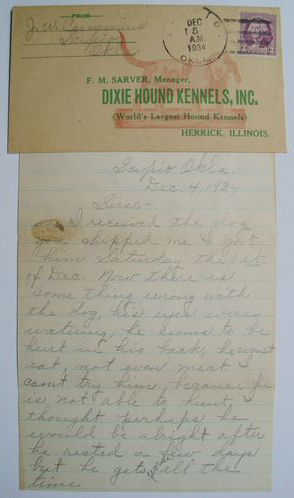 FROM
J. W. Cummins
Scipio
Okla
DEC
5
A.M.
1934
OKLA.
F. M. SARVER, Manager,
DIXIE HOUND KENNELS, INC.
(World's Largest Hound Kennels)
HERRICK, ILLINOIS.
Scipio Okla.
Dec. 4, 1934
Sirs:-
I received the dog
you shipped me & got
him Saturday the 1st
of Dec. Now there is
some thing wrong with
the dog, his eyes
watering, he seems to be
hurt in his back, he wont
eat, not even meat I
cannt try him, because he
is not able to hunt, I
thought perhaps he
would be alright after
he rested a few days
but he gets worse all the
time